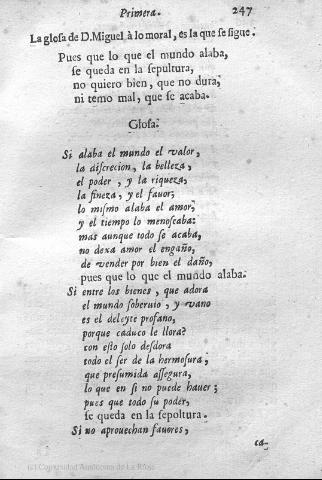 Primera. 247
La glosa de D. Miguel à lo moral, es la que se sigue.
Pues que lo que el mundo alaba,
se queda en la sepultura,
no quiero bien, que no dura,
ni temo mal, que se acaba.
Glosa.
Si alaba el mundo el valor,
la discrecion, la belleza,
el poder, y la riqueza,
la fineza, y el fauor;
lo mismo alaba el amor,
y el tiempo lo menoscaba:
mas aunque todo se acaba,
no dexa amor el engaño,
de vender por bien el daño,
pues que lo que el mundo alaba.
Si entre los bienes, que adora
el mundo soberuio, y vano
es el deleyte profano,
porque caduco le llora?
con esto solo desdora
todo el ser de la hermosura,
que presumida assegura,
lo que en si no puede hauer;
pues que todo su poder,
se queda en la sepoltura.
Si no aprouechan fauores,
ca-
(c) Comunidad Autónoma de La Rioja